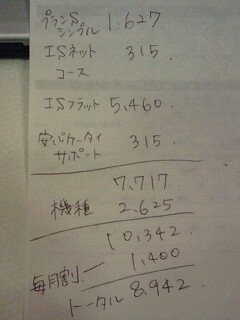 プランS
シンプル 1,627
ISネット 315.
コース
ISフラット 5,460.
安心ケータイ 315.
サポート
7,717
機種 2,625
10,342.
毎月割 ー 1,400
トータル 8,942.